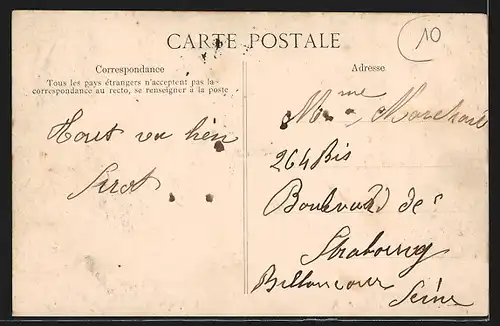 CARTE POSTALE
10
Correspondance
Tous les pays étrangers n'acceptent pas la
correspondance au recto, se renseigner à la poste
Tout va bien
Adresse
Mme Marchard
264 Bis
Boulevard de
Strabourg
Billancour
Seine